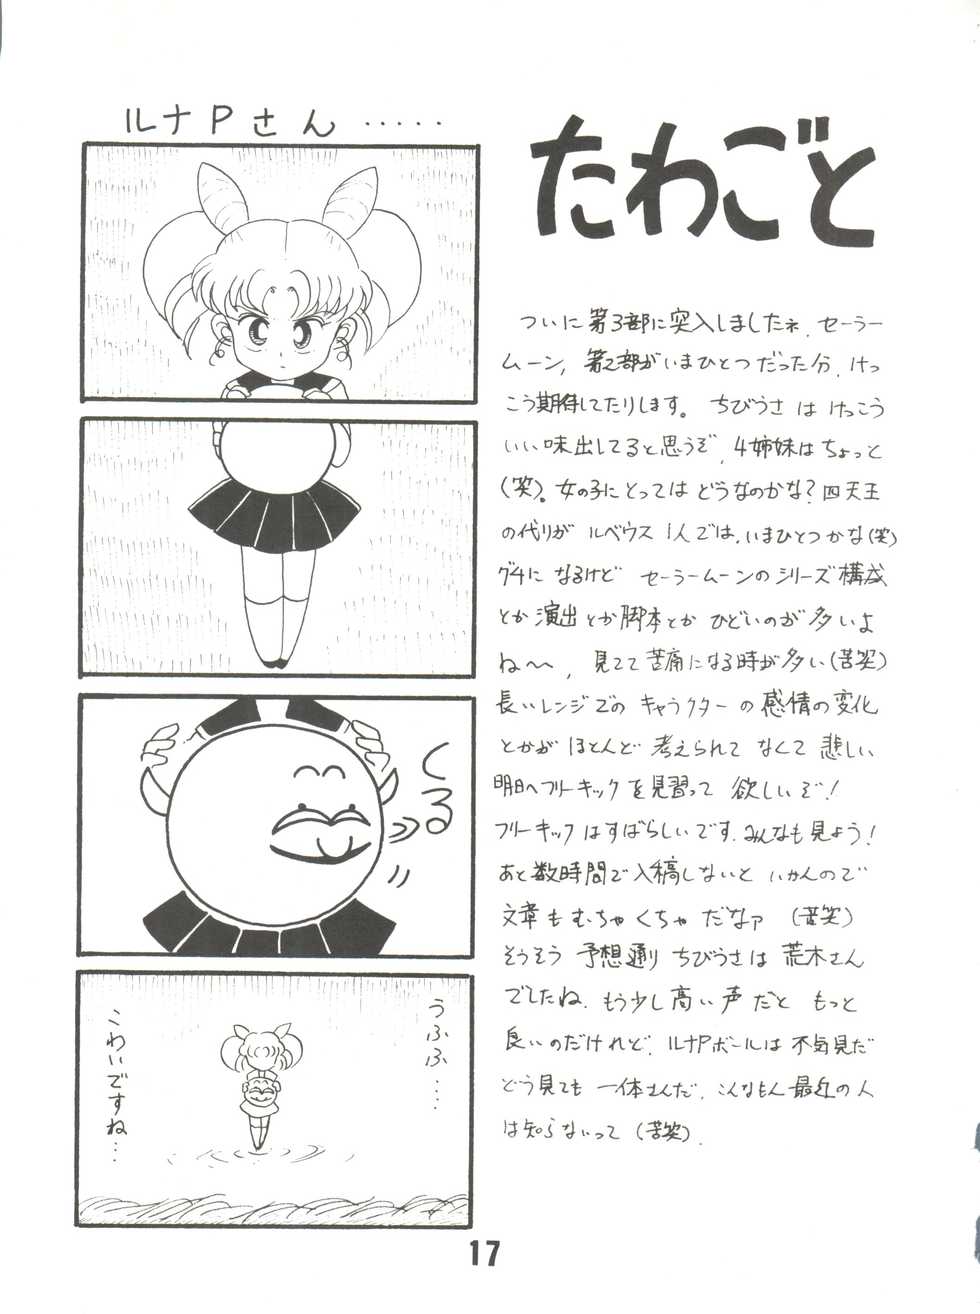 ルナPさん‥‥‥
くる
うふふ‥‥
こわいですね‥‥
たわごと
ついに第3部に突入しましたネ、セーラー
ムーン, 第2部がいまひとつだった分、けっ
こう期待してたりします。ちびうさはけっこう
いい味出してると思うぞ、4姉妹はちょっと
(笑)。女の子にとってはどうなのかな?四天王
の代りがルベウス1人では、いまひとつかな(笑)
グチになるけどセーラームーンのシリーズ構成
とか演出とか脚本とかひどいのが多いよ
ね〜、見てて苦痛になる時が多い(苦笑)
長いレンジでのキャラクターの感情の変化
とかがほとんど考えられてなくて悲しい
明日へフリーキックを見習って欲しいぞ!
フリーキックはすばらしいです、みんなも見よう!
あと数時間で入稿しないといかんので
文章もむちゃくちゃだなァ(苦笑)
そうそう予想通りちびうさは荒木さん
でしたね、もう少し高い声だともっと
良いのだけれど、ルナPボールは不気見だ
どう見ても一体さんだ、こんなもん最近の人
は知らないって(苦笑).
17